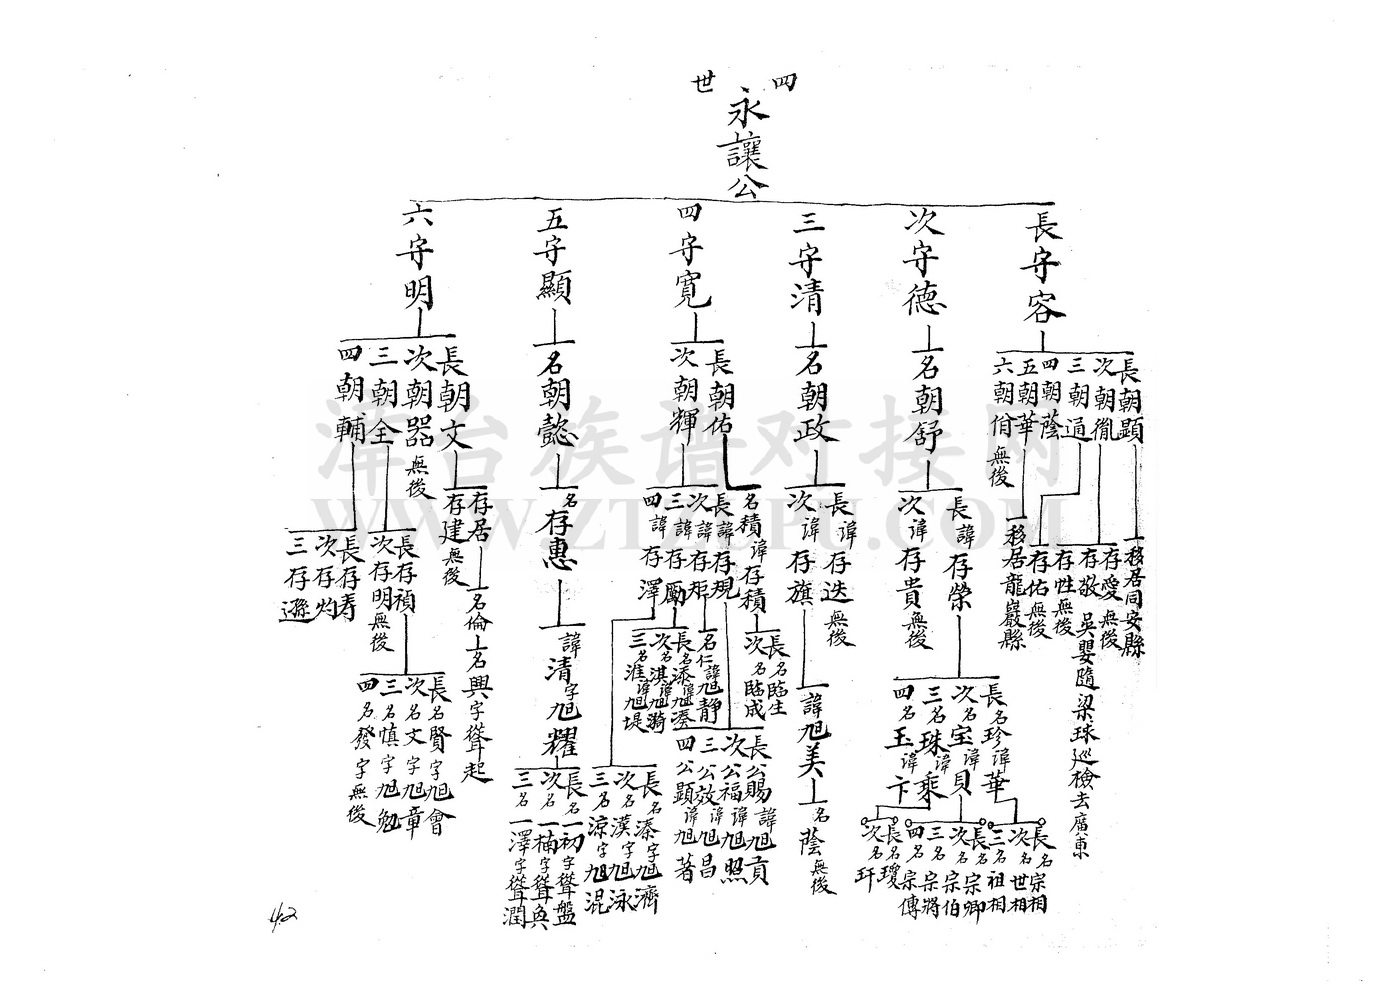 四世
永讓公
長守容
次守德
三守清
四守寬
五守顯
六守明
長朝顕
次朝胤
三朝通
四朝蔭
五朝華
六朝佾 無後
名朝舒
名朝政
長朝佑
次朝輝
名朝懿
長朝文
次朝器 無後
三朝全
四朝輔
移居同安縣
存愛 無後
存敬 吳嬰隨梁球巡檢去廣東
存性 無後
存佑 無後
移居龍巖縣
長諱存榮
次諱存貴 無後
長諱存迭 無後
次諱存旗
名積諱存積
長諱存規
次諱存矩
三諱存勵
四諱存澤
名存惠
存居
存建 無後
長存禎
次存明 無後
長存寿
次存灼
三存遜
長名珍諱華
次名宝諱貝
三名珠諱乘
四名玉諱卞
諱旭美
名蔭 無後
長名臨生
次名臨成
名仁諱旭靜
長名溙諱旭湊
次名淇諱旭漪
三名淮諱旭堤
諱清字旭耀
名倫
名興字聳起
長名賢字旭會
次名文字旭章
三名慎字旭勉
四名發字無後
長名宗相
次名世相
三名祖相
長名宗卿
次名宗伯
三名宗將
四名宗傳
長名瓊
次名玕
長公賜諱旭貢
次公福諱旭照
三公效諱旭昌
四公顕諱旭著
長名溱字旭濟
次名漢字旭泳
三名涼字旭混
長名一初字聳盤
次名一楠字聳奐
三名一澤字聳潤
42
泽台族谱对接网
WWW.ZTZLPU.COM